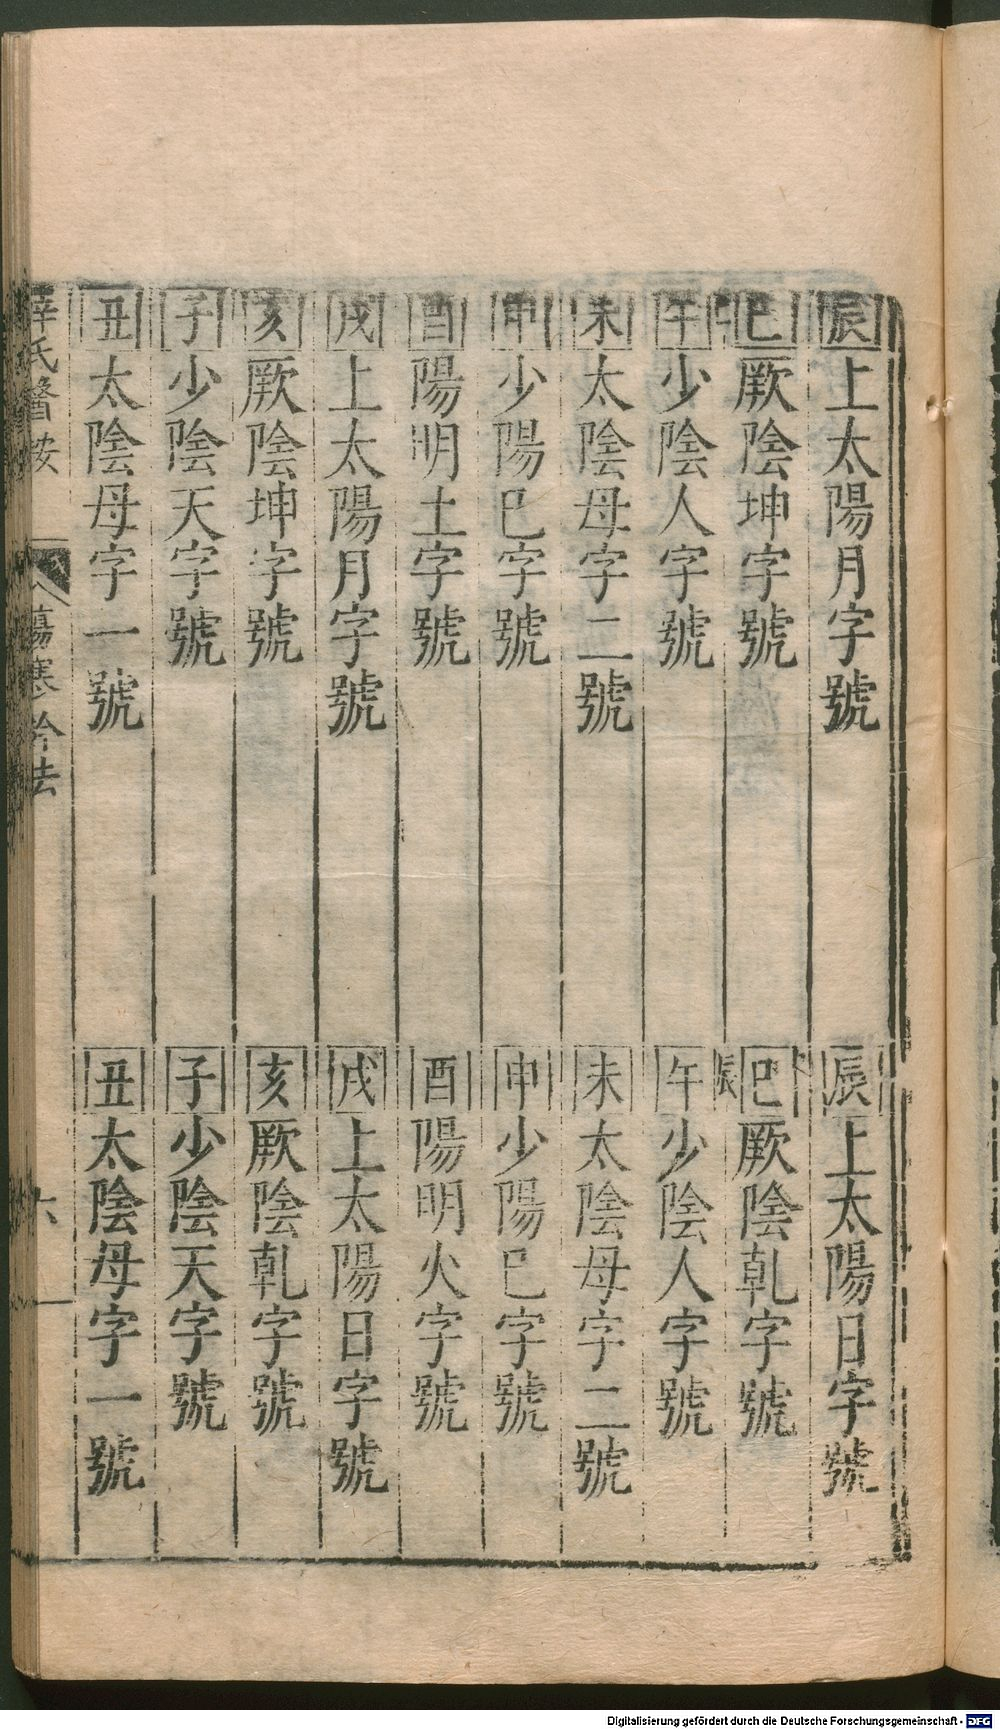 辰上太陽月字號
辰上太陽日字號
巳厥陰坤字號
巳厥陰乹字號
辰
午少陰人字號
午少陰人字號
未太陰母字二號
未太陰母字二號
申少陽巳字號
申少陽巳字號
酉陽明土字號
酉陽明火字號
戌上太陽月字號
戌上太陽日字號
亥厥陰坤字號
亥厥陰乹字號
子少陰天字號
子少陰天字號
丑太陰母字一號
丑太陰母字一號
氏醫按
傷寒鈐法
六
Digitalisierung gefördert durch die Deutsche Forschungsgemeinschaft - DFG